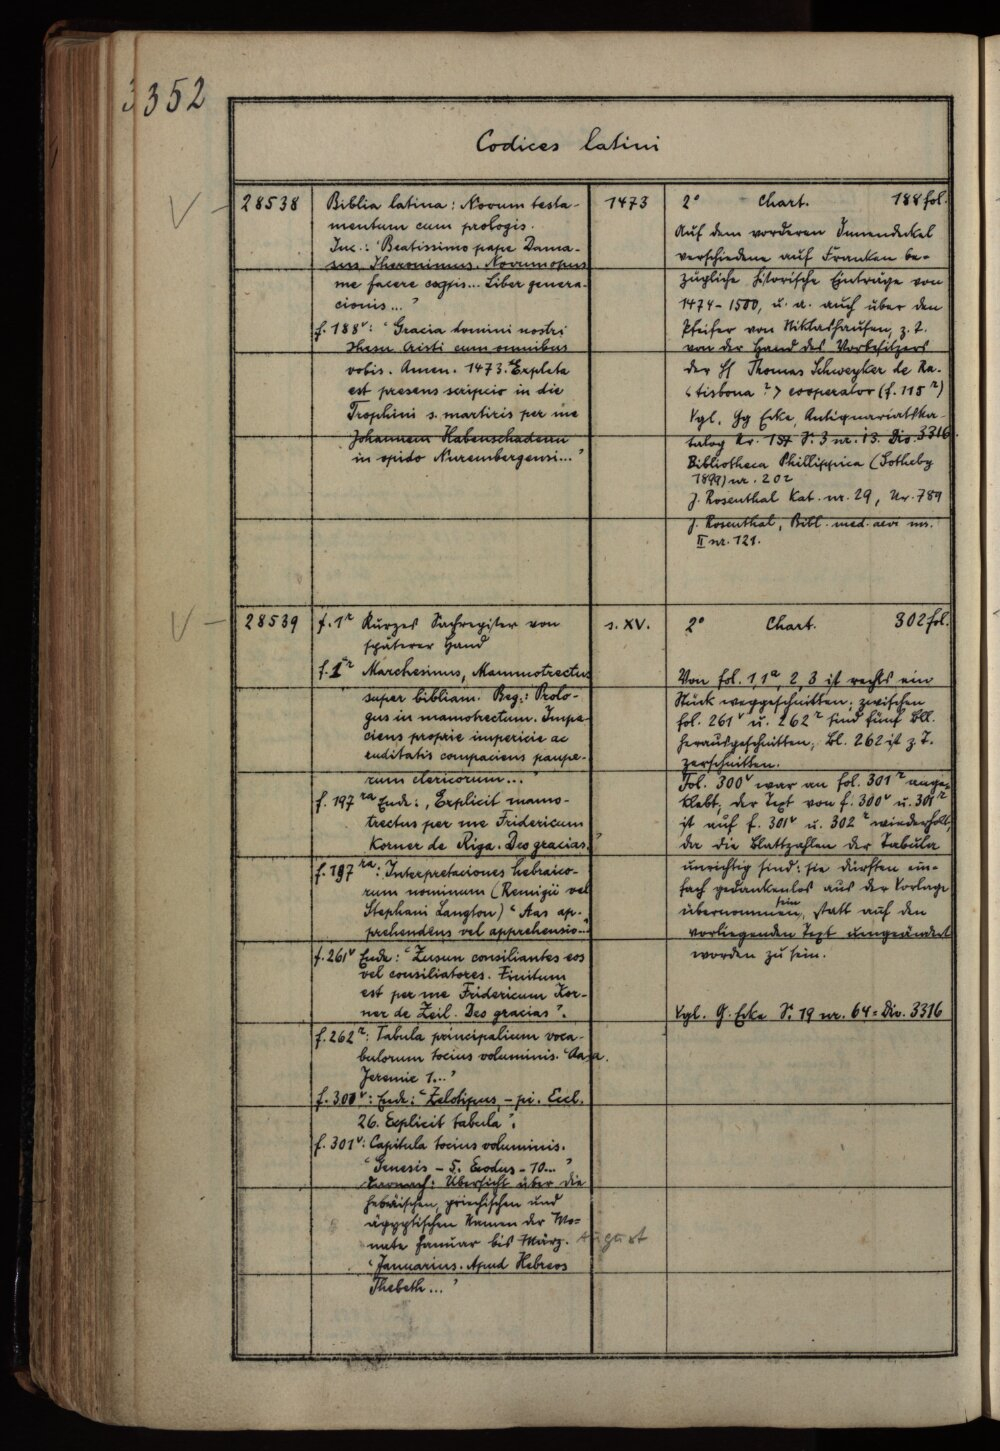 3352
Codices latini
28538
Biblia latina: Novum testa-
mentum cum prologis.
Inc.: "Beatissimo pape Dama-
sus Iheronimus. Novum opus
me facere cogis... Liber genera-
cionis..."
f. 188v: "Gracia domini nostri
Ihesu Cristi cum omnibus
vobis. Amen. 1473. Expleta
est presens scripcio in die
Trophini s. martiris per me
Johannem Habenschadenn
in opido Nurembergensi..."
1473
2° Chart. 188 fol.
Auf dem vorderen Innendeckel
verschiedene auf Franken be-
zügliche historische Einträge von
1474-1500, u. a. auch über den
Pfeifer von Niklashausen, z. T.
von der Hand des Vorbesitzers
der Hs Thomas Schweyker de Ra-
<tisbona ?> cooperator (f. 115r)
Vgl. Gg Ecke, Antiquariatska-
talog Nr. 157 S. 3 nr. 13. Div. 3316.
Bibliotheca Phillippica (Sotheby
1899) nr. 202
J. Rosenthal Kat. nr. 29, Nr. 789
J. Rosenthal, Bibl. med. aevi ms.
II nr. 121.
28539
f. 1r Kurzes Sachregister von
späterer Hand
f. 1r Marchesinus, Mammotrectus
super bibliam. Beg.: Prolo-
gus in mamotrectum. Impa-
ciens proprie impericie ac
ruditatis compaciens paupe-
rum clericorum..."
f. 197ra Ende: "Explicit mamo-
trectus per me Fridericum
Korner de Riga. Deo gracias."
f. 197ra: Interpretaciones hebraico-
rum nominum (Remigii vel
Stephani Langton) "Aas ap-
prehendens vel apprehensio..."
f. 261v Ende: "Zusun consiliantes eos
vel consiliatores. Finitum
est per me Fridericum Kor-
ner de Zeil. Deo gracias".
f. 262r: Tabula principalium voca-
bulorum tocius voluminis. "Aaa.
Jeremie 1..."
f. 300v: Ende: "Zelotipus, - pi. Eccl.
26. Explicit tabula".
f. 301v: Capitula tocius voluminis.
"Genesis - 5. Exodus - 10..."
Darnach: Übersicht über die
hebräischen, griechischen und
ägyptischen Namen der Mo-
nate Januar bis März. August
"Januarius. Apud Hebreos
Thebeth..."
s. XV.
2° Chart. 302 fol.
Von fol. 1, 1a, 2, 3 ist rechts ein
Stück weggeschnitten; zwischen
fol. 261v u. 262r sind fünf Bll.
herausgeschnitten, Bl. 262 ist z. T.
zerschnitten.
Fol. 300v war an fol. 301r ange-
klebt, der Text von f. 300v u. 301r
ist auf f. 301v u. 302r wiederholt,
da die Blattzahlen der Tabula
unrichtig sind: sie dürften ein-
fach gedankenlos aus der Vorlage
übernommen sein, statt auf den
vorliegenden Text umgeändert
worden zu sein.
Vgl. G. Ecke S. 19 nr. 64 = Div. 3316